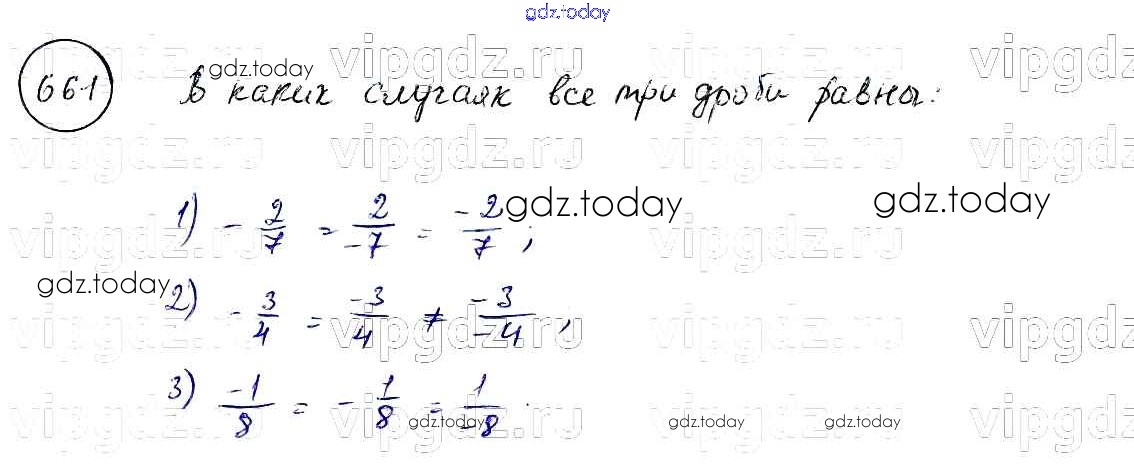 gdz.today
661 В каких случаях все три дроби равны:
gdz.today
vipgdz.ru vipgdz.ru vipgdz.ru vipgdz
vipgdz.ru vipgdz.ru vipgdz.ru vipgdz
1) - 2/7 = 2/-7 = -2/7 ;
gdz.today gdz.today
vipgdz.ru vipgdz.ru vipgdz.ru vipgdz
gdz.today
2) - 3/4 = -3/4 ≠ -3/-4 ;
vipgdz.ru vipgdz.ru vipgdz.ru vipgdz
3) -1/8 = - 1/8 = 1/-8 .
vipgdz.ru vipgdz.ru vipgdz.ru vipgdz
gdz.today gdz.today gdz.today